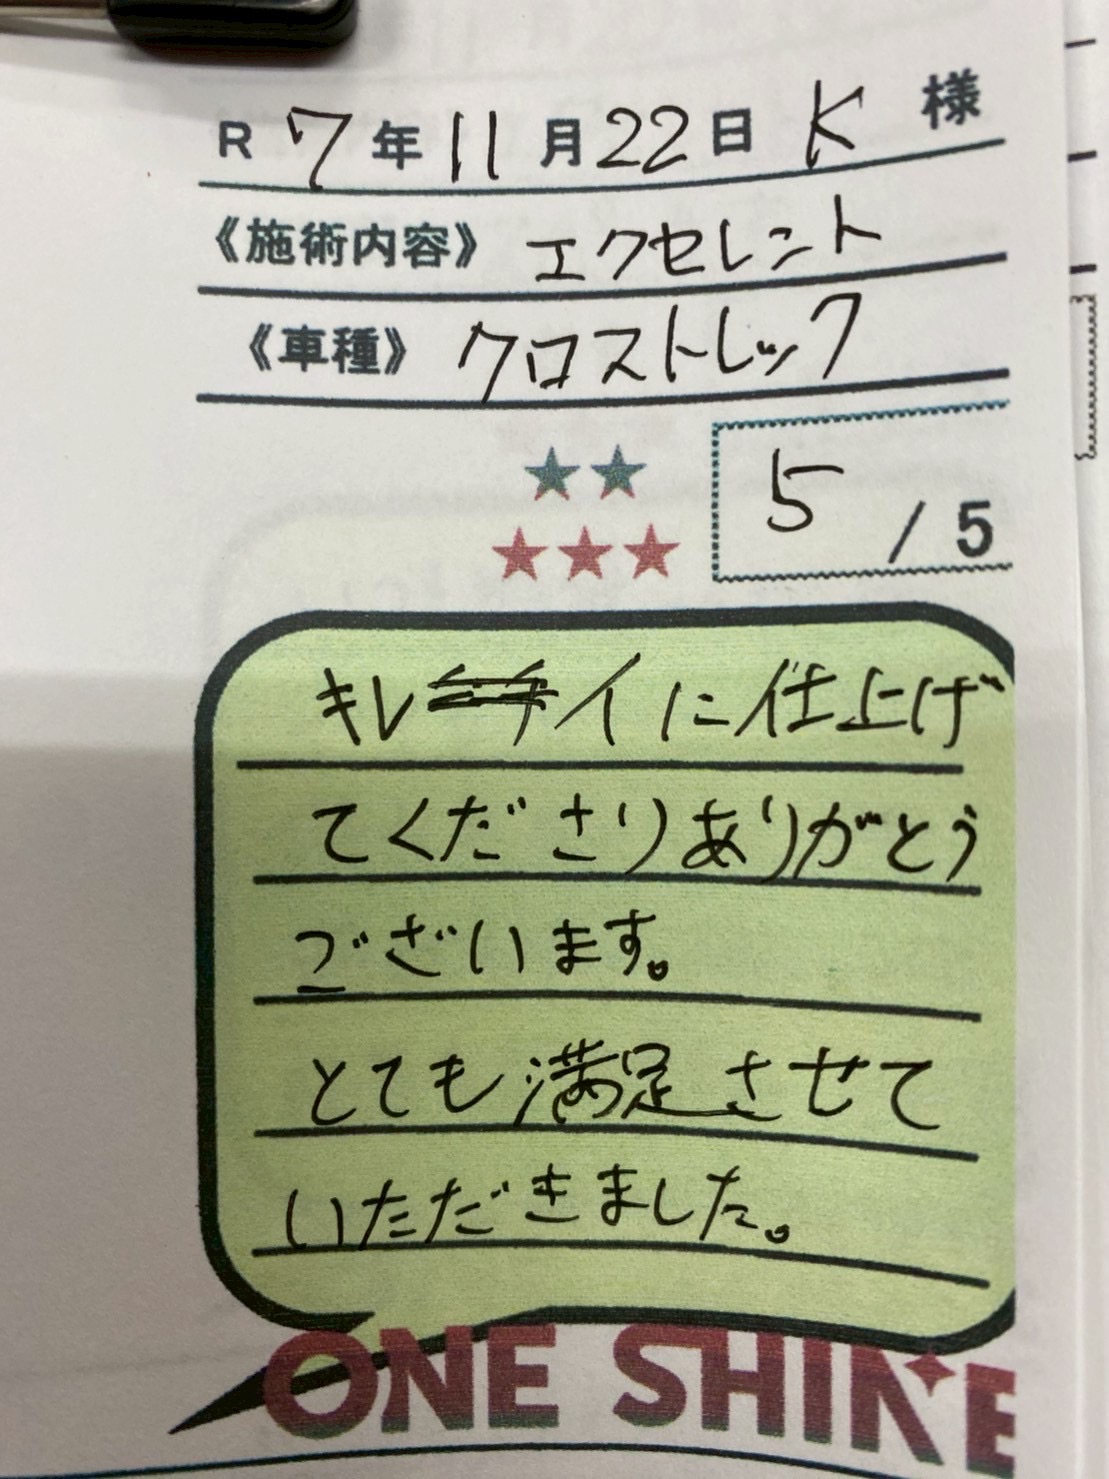 R 7年 11月22日 K 様
《施術内容》 エクセレント
《車種》 クロストレック
★★
★★★
5 / 5
キレイに仕上げ
てくださりありがとう
ございます。
とても満足させて
いただきました。
ONE SHINE